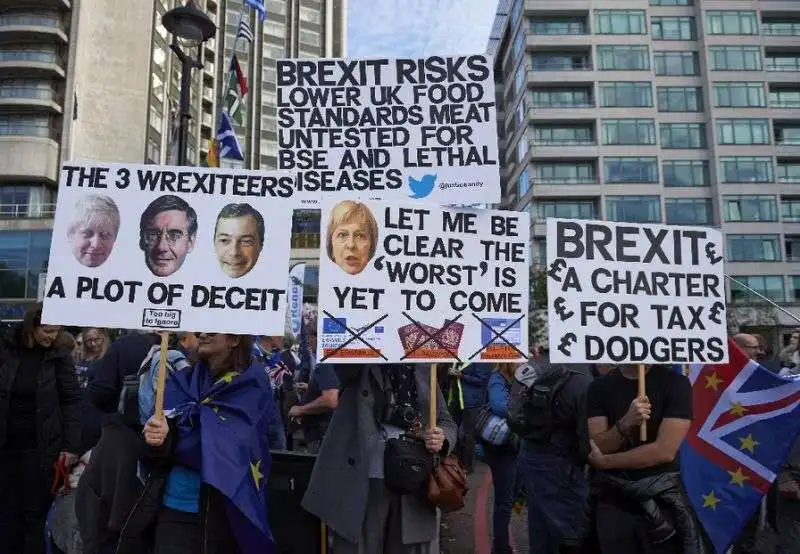 BREXIT RISKS
LOWER UK FOOD
STANDARDS MEAT
UNTESTED FOR
BSE AND LETHAL
ISEASES
THE 3 WREXITEERS
A PLOT OF DECEIT
Too big
to ignore
LET ME BE
CLEAR THE
'WORST' IS
YET TO COME
BREXIT £
£ A CHARTER
£ FOR TAX £
£ DODGERS